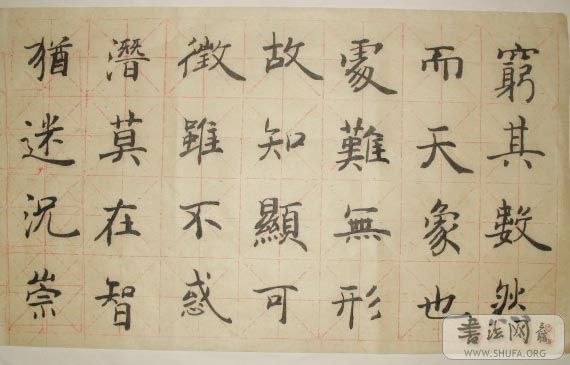 窮其數然
而天象也
處難無形
故知顯可
徵雖不惑
潛莫在智
猶迷況崇
书法网
WWW.SHUFA.ORG